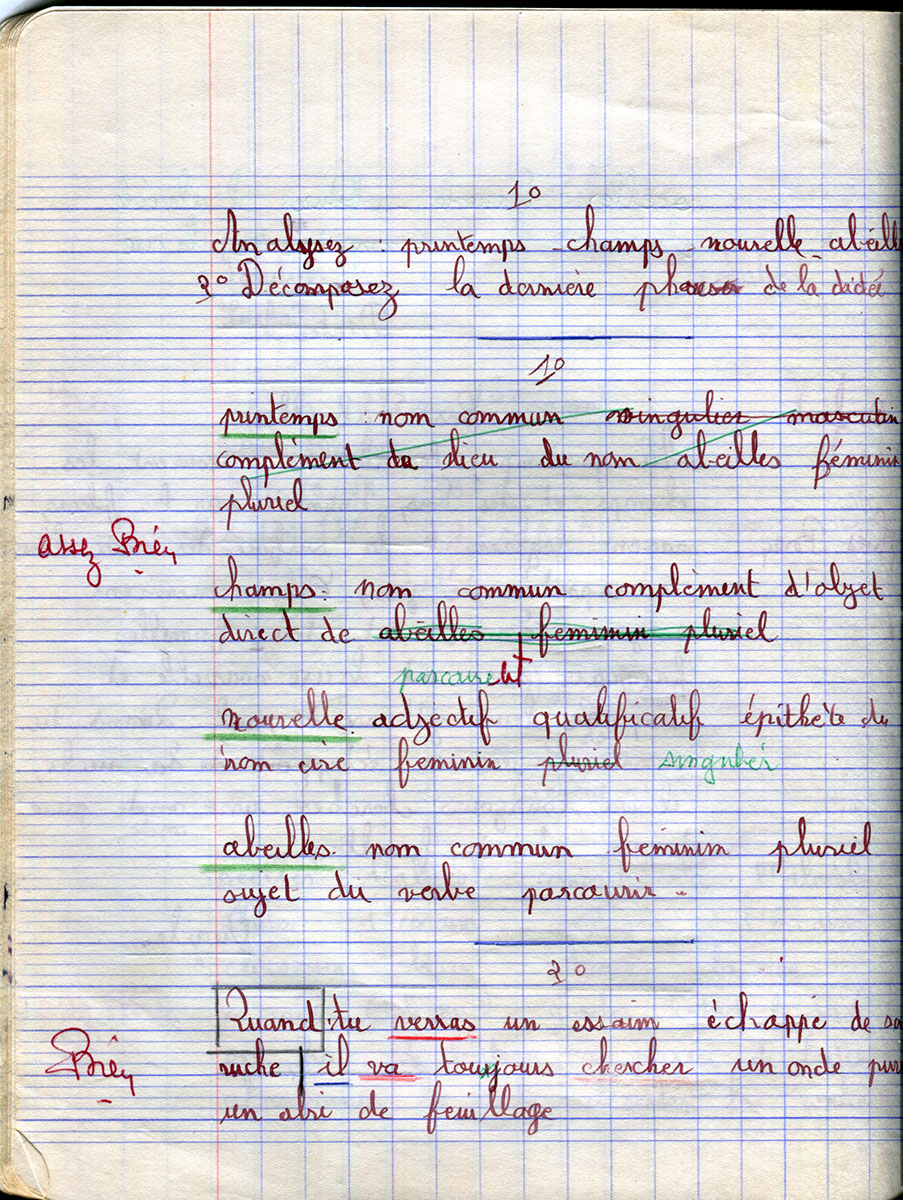 1º
Analysez : printemps - champs - nouvelle - abeill
2º Décomposez la dernière phrase de la dictée
1º
printemps : nom commun singulier masculin
complèment de lieu du nom abeilles féminin
pluriel
assez Bien
champs : nom commun complèment d'objet
direct de abeilles feminin pluriel
parcourent
nouvelle adjectif qualificatif épithète du
nom cire feminin pluriel singulier
abeilles. nom commun féminin pluriel
sujet du verbe parcourir -
2º
Quand tu verras un essaim échappé de sa
ruche il va toujours chercher un onde pur
Bien
un abri de feuillage